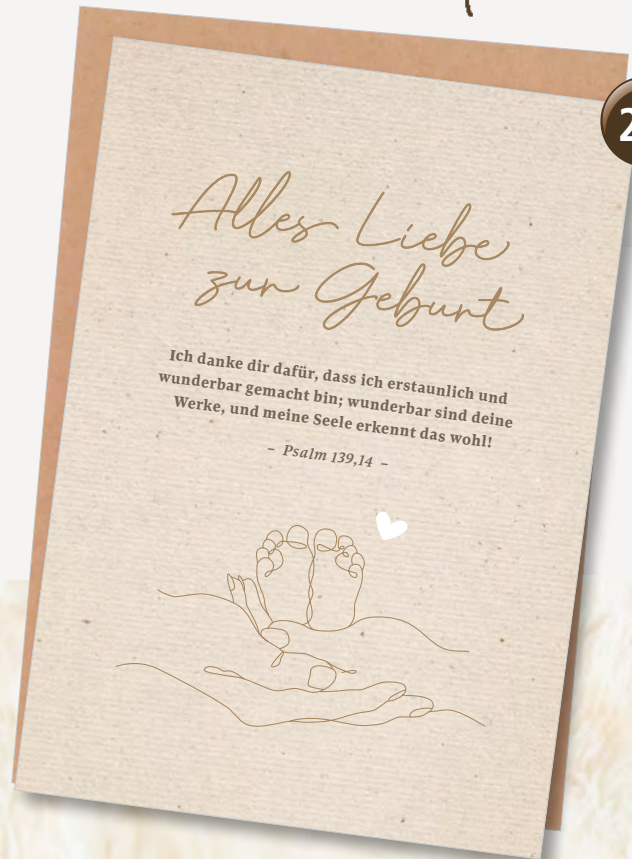 2
Alles Liebe
zur Geburt
Ich danke dir dafür, dass ich erstaunlich und
wunderbar gemacht bin; wunderbar sind deine
Werke, und meine Seele erkennt das wohl!
– Psalm 139,14 –